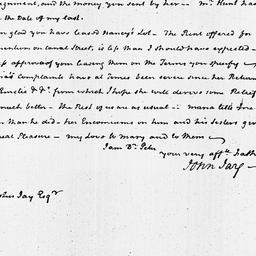 ignment, and the money you sent by her — Mr Hunt has
the Date of my last.
glad you have leased Nancy's Lot — The Rent offered for
on Canal Street, is less than I should have expected —
approve of your leasing them on the Terms you specify
Complaints have at Times been severe since her Return
from which I hope she will derive some Relief
much better — the Rest of us are as usual — maria tells me
than he did — her Encomiums on him and his Sisters give
real Pleasure — my Love to Mary and to them —
I am Dr. Peter
your very affte. Fath
John Jay —
Jay Esqr